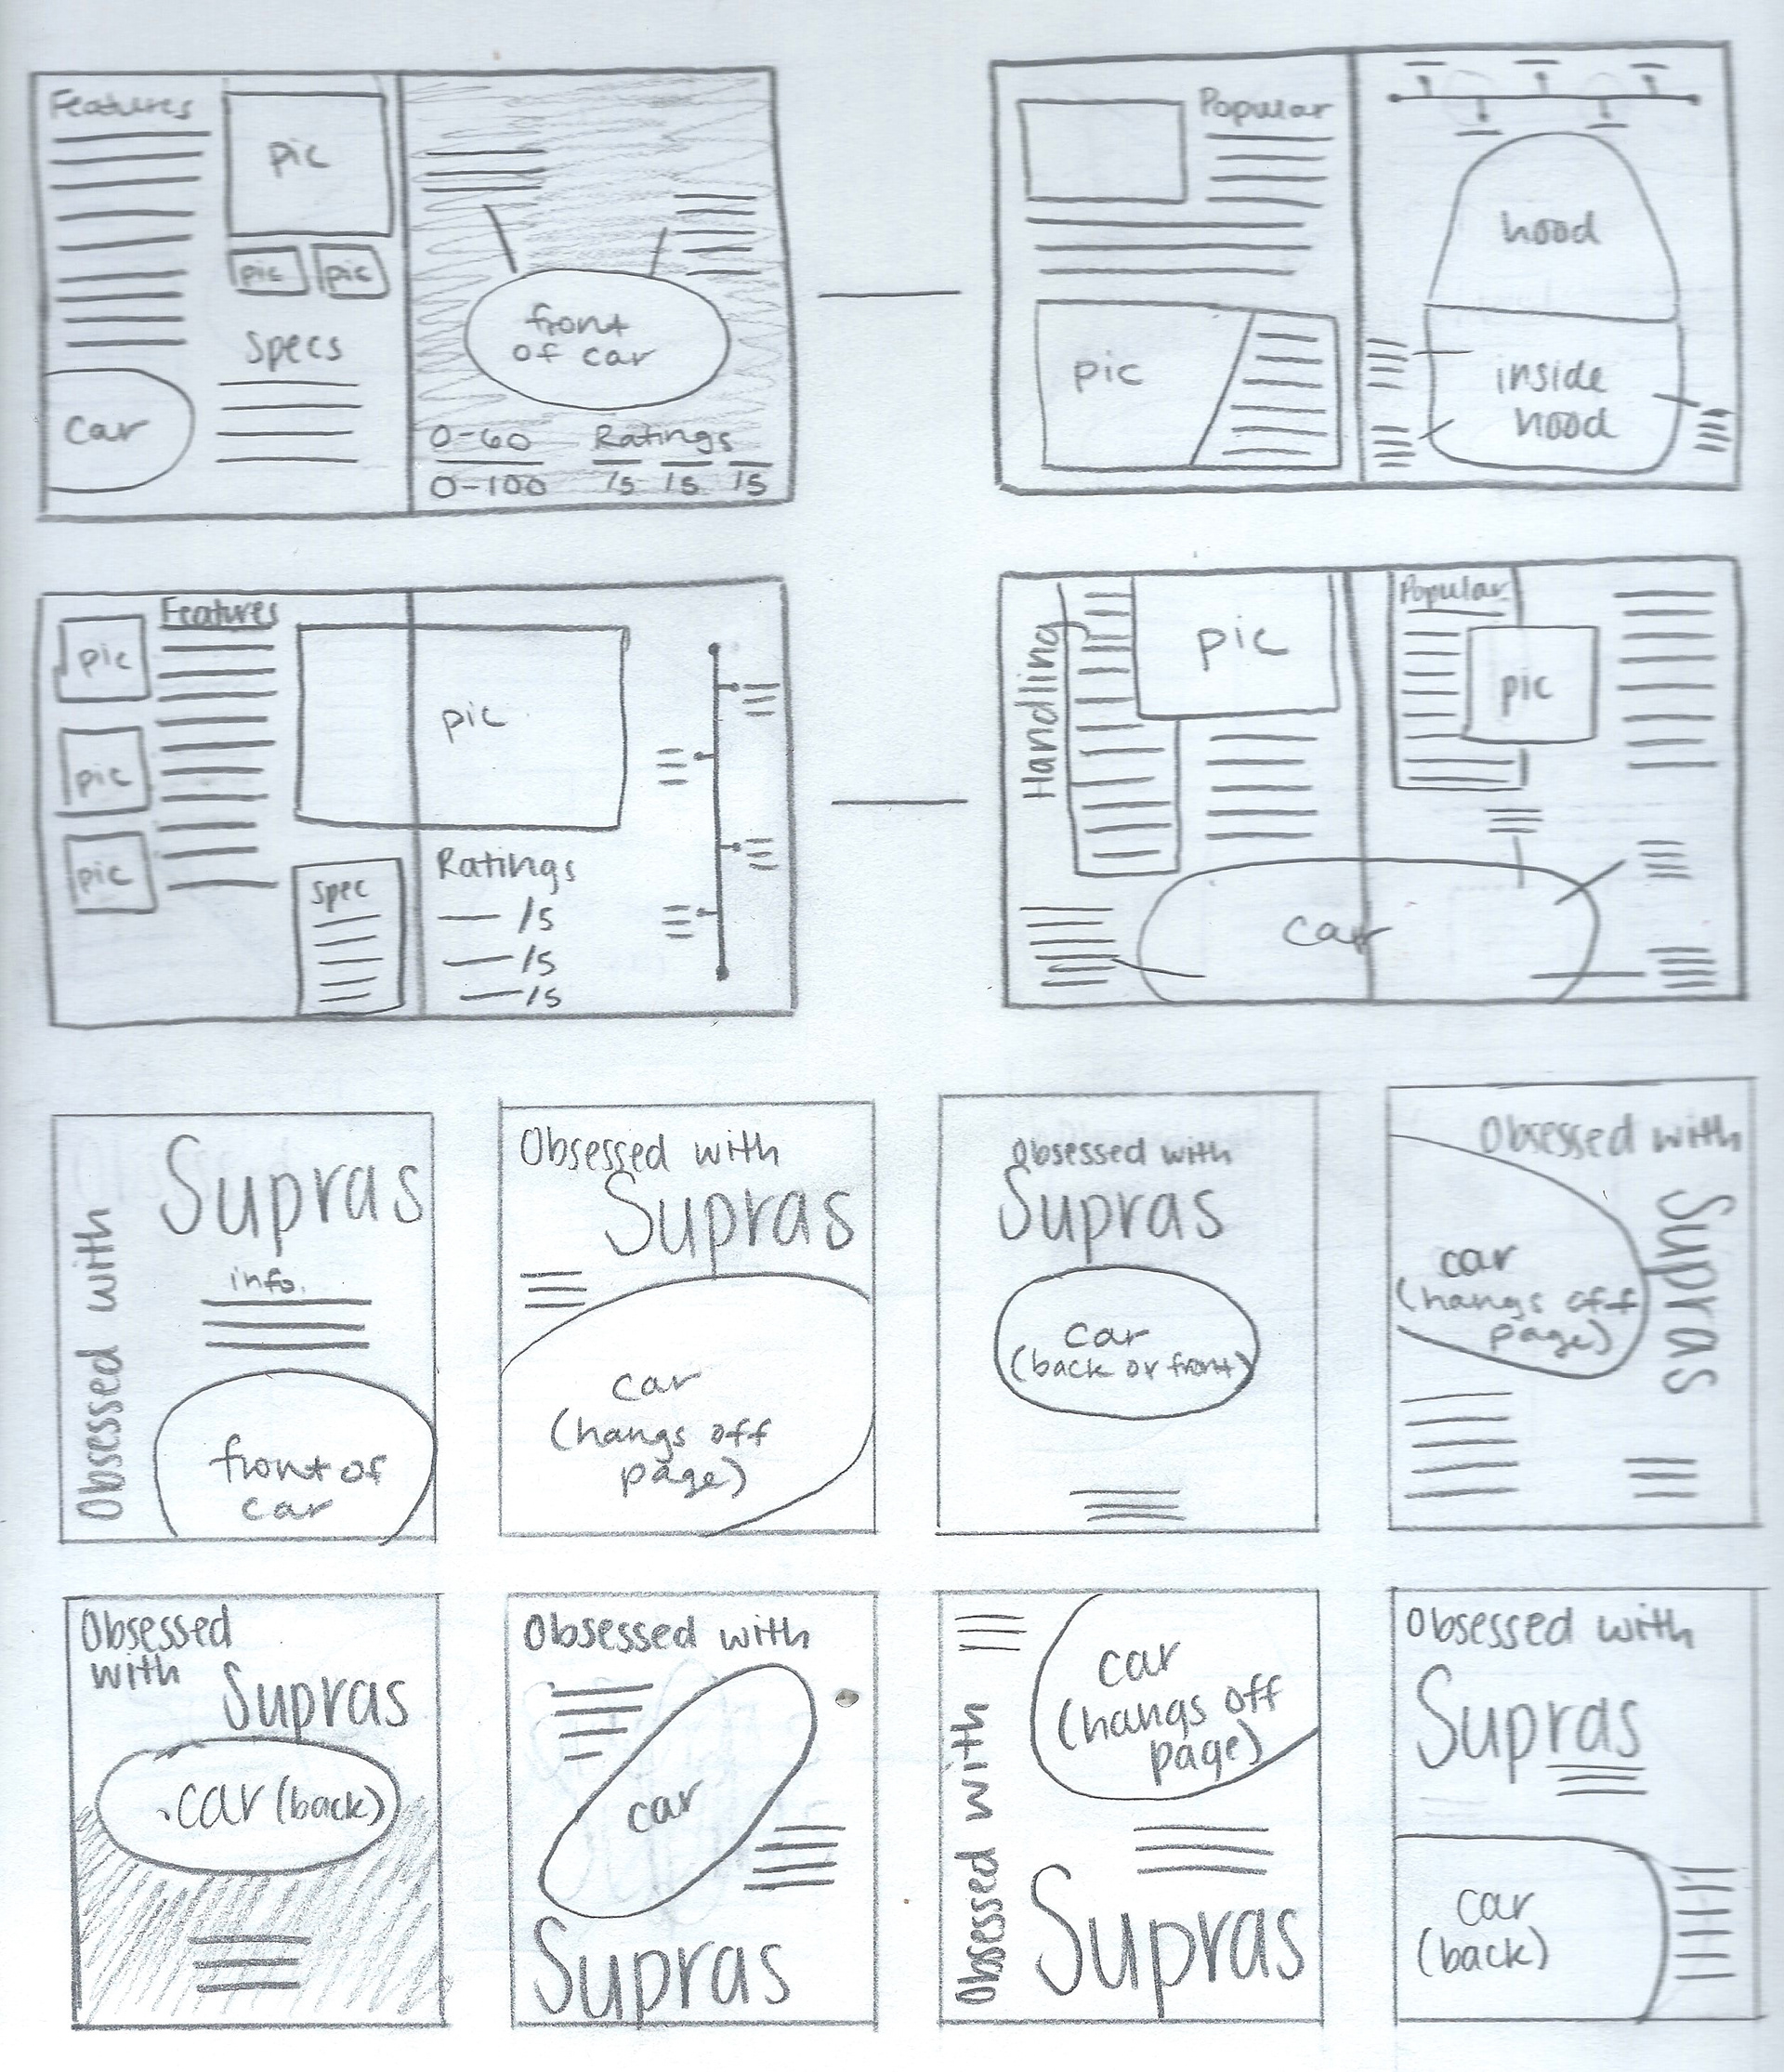 Features
pic
pic
pic
Specs
car
front
of car
0-60
0-100
Ratings
/5 /5 /5
Popular
pic
hood
inside
hood
pic
pic
pic
Features
pic
spec
Ratings
/5
/5
/5
Handling
pic
Popular
pic
car
Obsessed with
Supras
info.
front of
car
Obsessed with
Supras
car
(hangs off
page)
Obsessed with
Supras
car
(back or front)
Obsessed with
Supras
car
(hangs off
page)
Obsessed
with
Supras
car (back)
Obsessed with
car
Supras
car
(hangs off
page)
Obsessed with
Supras
Obsessed with
Supras
car
(back)